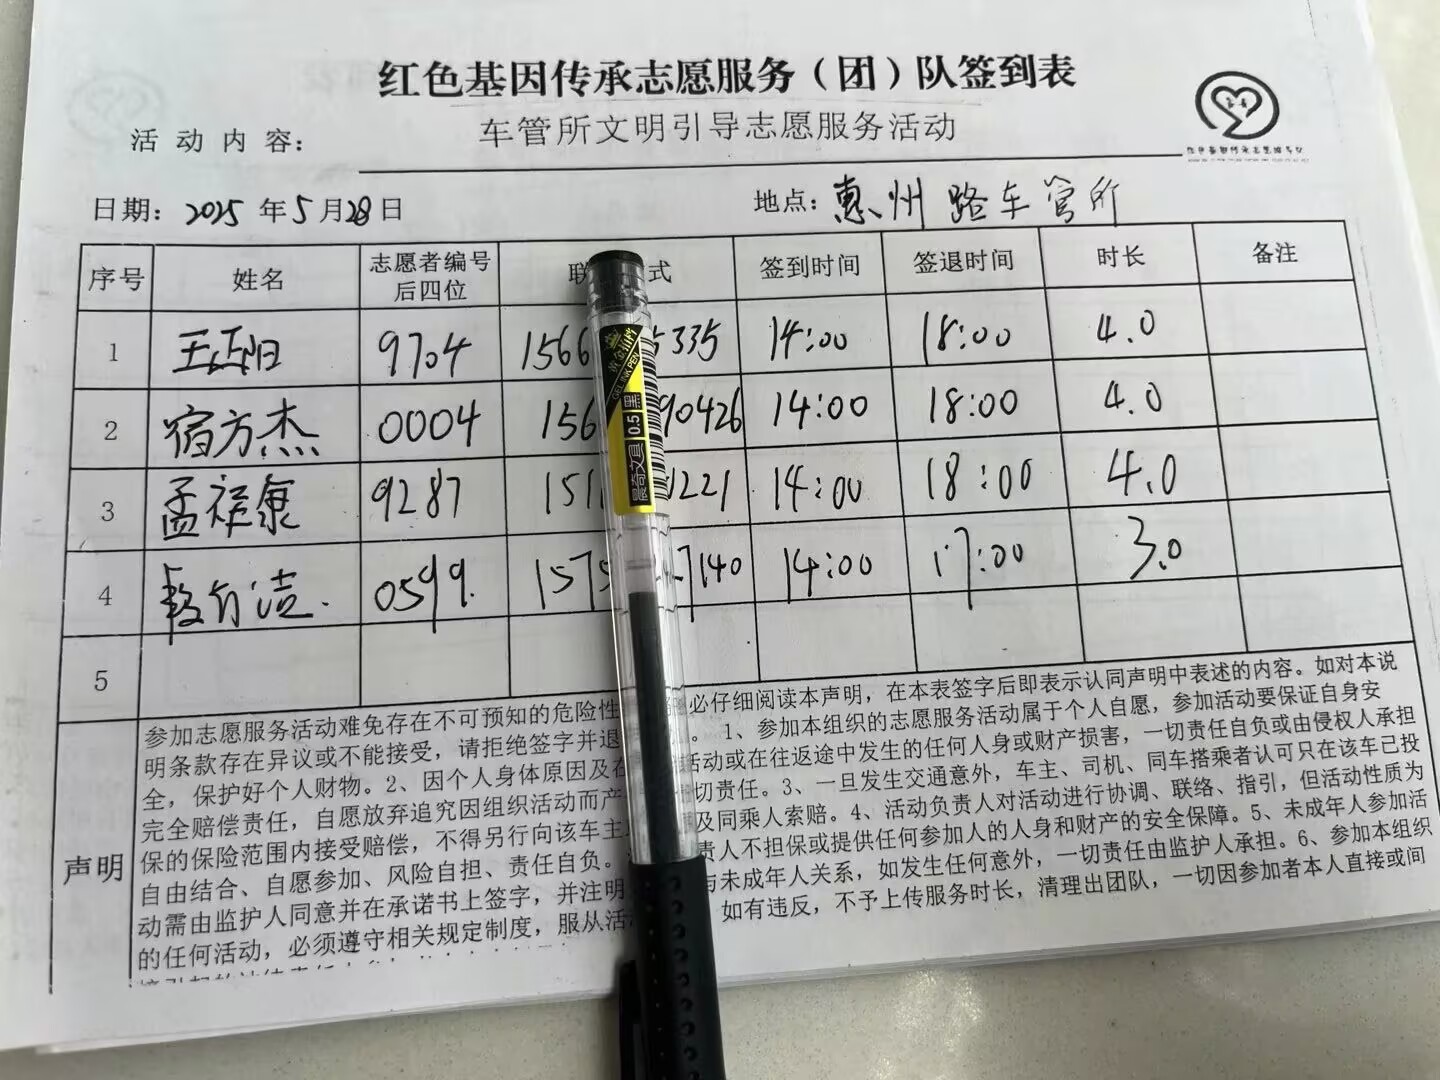 红色基因传承志愿服务（团）队签到表
活动内容： 车管所文明引导志愿服务活动
日期：2025年5月28日 地点：惠州路车管所
序号 姓名 志愿者编号后四位 联 式 签到时间 签退时间 时长 备注
1 王岳阳 9704 1566 5335 14:00 18:00 4.0
2 宿方杰 0004 156 90426 14:00 18:00 4.0
3 孟祥康 9287 151 1221 14:00 18:00 4.0
4 洁. 0599. 1575 7140 14:00 17:00 3.0
5
声明
参加志愿服务活动难免存在不可预知的危险性 必仔细阅读本声明，在本表签字后即表示认同声明中表述的内容。如对本说
明条款存在异议或不能接受，请拒绝签字并退 。1、参加本组织的志愿服务活动属于个人自愿，参加活动要保证自身安
全，保护好个人财物。2、因个人身体原因及在 活动或在往返途中发生的任何人身或财产损害，一切责任自负或由侵权人承担
完全赔偿责任，自愿放弃追究因组织活动而产 切责任。3、一旦发生交通意外，车主、司机、同车搭乘者认可只在该车已投
保的保险范围内接受赔偿，不得另行向该车主 及同乘人索赔。4、活动负责人对活动进行协调、联络、指引，但活动性质为
自由结合、自愿参加、风险自担、责任自负。 责人不担保或提供任何参加人的人身和财产的安全保障。5、未成年人参加活
动需由监护人同意并在承诺书上签字，并注明 与未成年人关系，如发生任何意外，一切责任由监护人承担。6、参加本组织
的任何活动，必须遵守相关规定制度，服从活 如有违反，不予上传服务时长，清理出团队，一切因参加者本人直接或间
GEL INK PEN
0.5 黑
晨奇文具